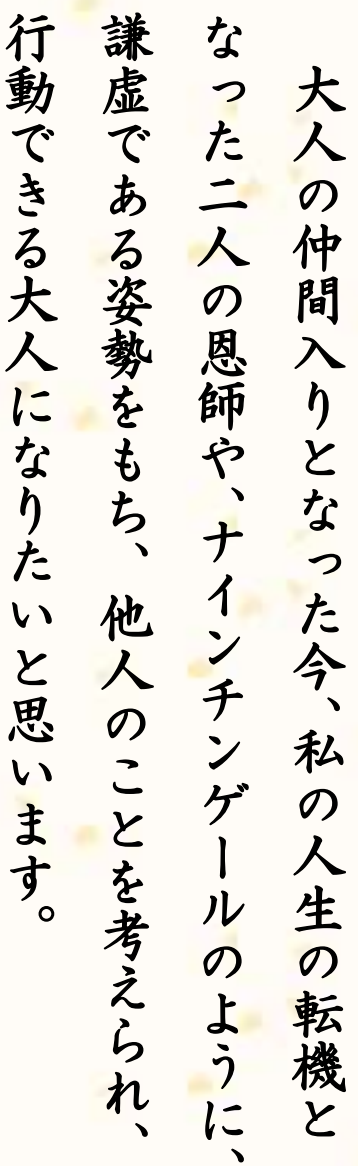 大人の仲間入りとなった今、私の人生の転機と
なった二人の恩師や、ナインチンゲールのように、
謙虚である姿勢をもち、他人のことを考えられ、
行動できる大人になりたいと思います。